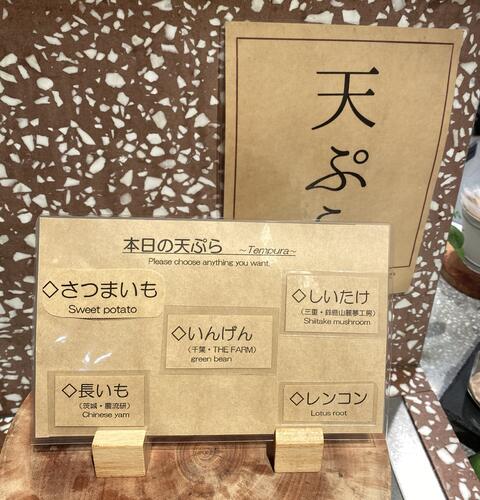 天ぷ
本日の天ぷら ~Tempura~
Please choose anything you want.
◇さつまいも
Sweet potato
◇しいたけ
(三重・鈴鹿山麓夢工房)
Shiitake mushroom
◇いんげん
(千葉・THE FARM)
green bean
◇長いも
(茨城・農流研)
Chinese yam
◇レンコン
Lotus root